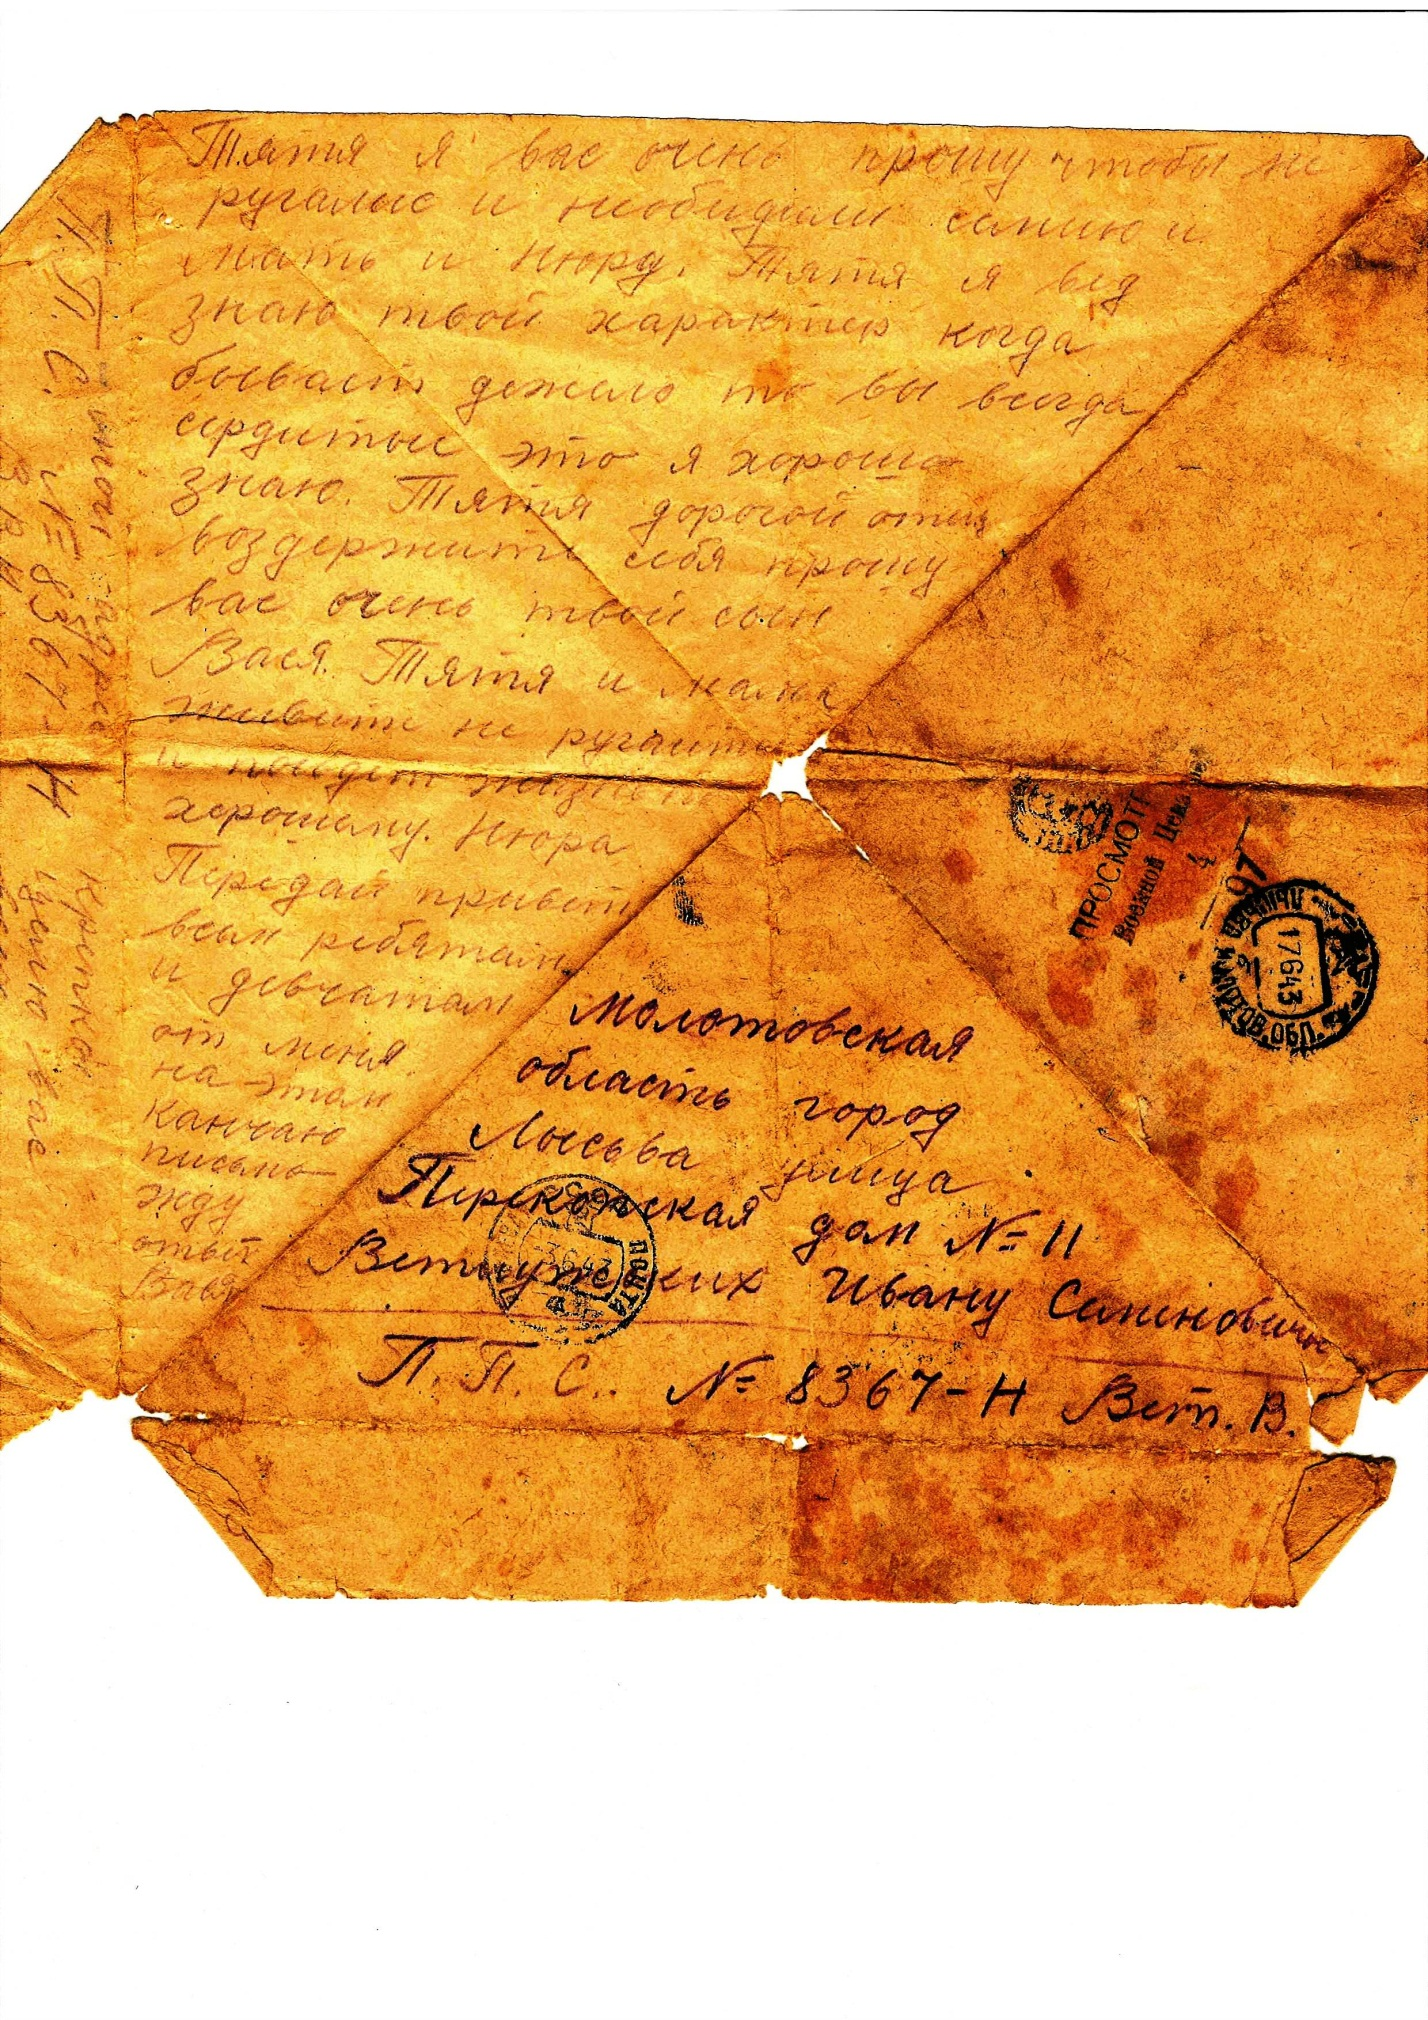 Тятя я вас очень прошу чтобы не
ругались и необидели семию и
мать и Нюру. Тятя я вед
знаю твой характер когда
бывает дожело то вы всегда
сердитые это я хорошо
знаю. Тятя дорогой отец
воздержите себя прошу
вас очень твой сын
Вася. Тятя и мама
живите не ругайте
и пойдет жизнь по
хорошему. Нюра
Передай привет
всем ребятам
и девчатам
от меня
на этом
канчаю
письмо
жду
ответ
Вася
П. П. С. № 8367-Н
крепко
целую вас
Молотовская
область город
Лысьва улица
Перекопская дом № 11
Ветлужских Ивану Семеновичу
П. П. С. № 8367-Н Вет. В.
ПРОСМОТР
Военной Ценз
97
17 6 43
МОЛОТОВ. ОБЛ.
3 6 43
ПОЧТА